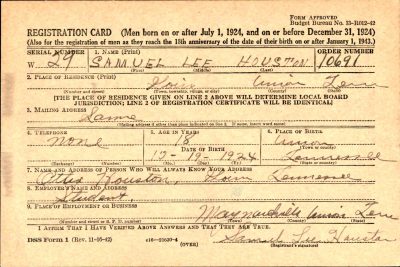 FORM APPROVED
Budget Bureau No. 33-R012-42
REGISTRATION CARD—(Men born on or after July 1, 1924, and on or before December 31, 1924)
(Also for the registration of men as they reach the 18th anniversary of the date of their birth on or after January 1, 1943.)
SERIAL NUMBER 1. NAME (Print) ORDER NUMBER
W 29 SAMUEL LEE HOUSTON 10691
2. PLACE OF RESIDENCE (Print)
Union Tenn
[THE PLACE OF RESIDENCE GIVEN ON LINE 2 ABOVE WILL DETERMINE LOCAL BOARD
JURISDICTION; LINE 2 OF REGISTRATION CERTIFICATE WILL BE IDENTICAL]
3. MAILING ADDRESS
Same
[Mailing address if other than place indicated on line 2. If same, insert word same]
4. TELEPHONE 5. AGE IN YEARS 6. PLACE OF BIRTH
None 18 Union
DATE OF BIRTH
12-19-1924 Tennessee
(Exchange) (Number) (Mo.) (Day) (Yr.) (State or country)
7. NAME AND ADDRESS OF PERSON WHO WILL ALWAYS KNOW YOUR ADDRESS
Houston, Tennessee
8. EMPLOYER'S NAME AND ADDRESS
Student
9. PLACE OF EMPLOYMENT OR BUSINESS
Maynardville Union Tenn
(Number and street or R. F. D. number) (Town) (County) (State)
I AFFIRM THAT I HAVE VERIFIED ABOVE ANSWERS AND THAT THEY ARE TRUE.
DSS Form 1 (Rev. 11-16-42) (OVER) Samuel Lee Houston